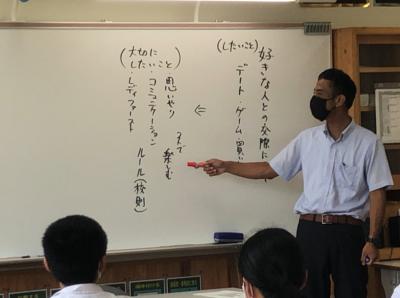 (したいこと)
好きな人との交際に
デート・ゲーム・買い
⇐
(大切に
したいこと)
思いやり
みんなで楽しむ
・コミュニケーション
ルール(校則)
・レディファースト